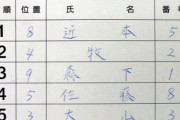 順 位置 氏 名 番号
1 8 近 本 5
2 4 中 牧 2
3 9 森 下 1
4 5 佐 藤 8
5 3 大 山 3